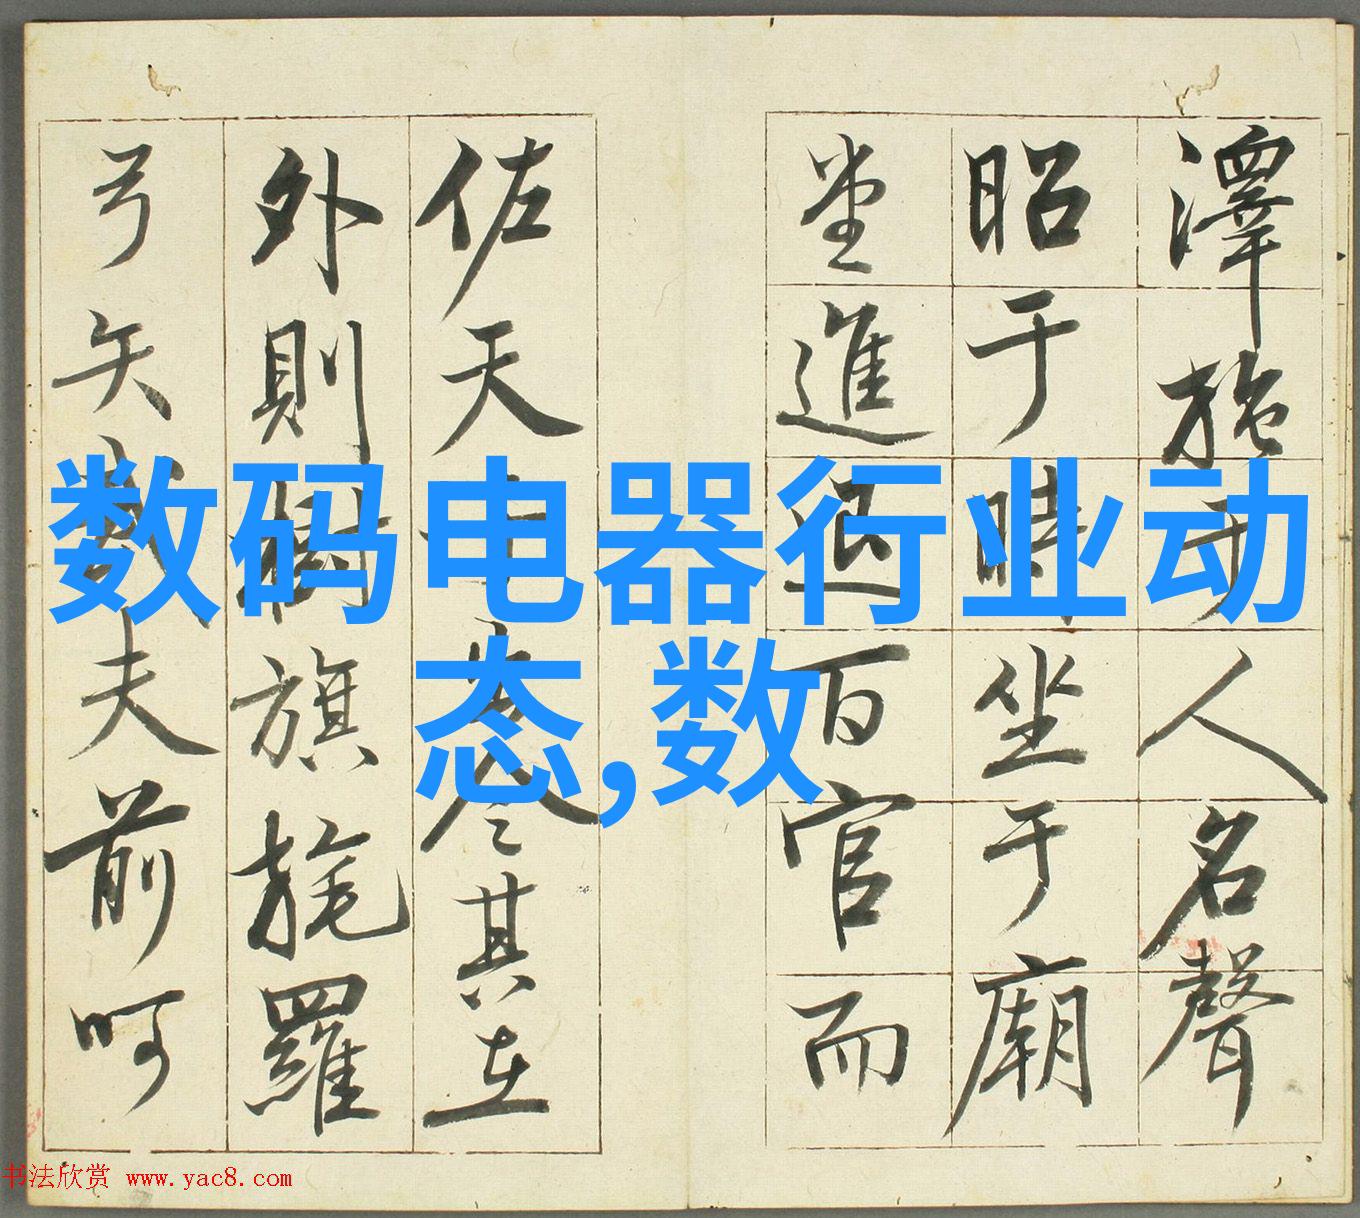 数码电器行业动
态,数
澤施于人名聲
昭于時坐于廟
堂進退百官而
佐天令其在
外則樹旗旄羅
弓矢武夫前呵
书法欣赏 www.yac8.com